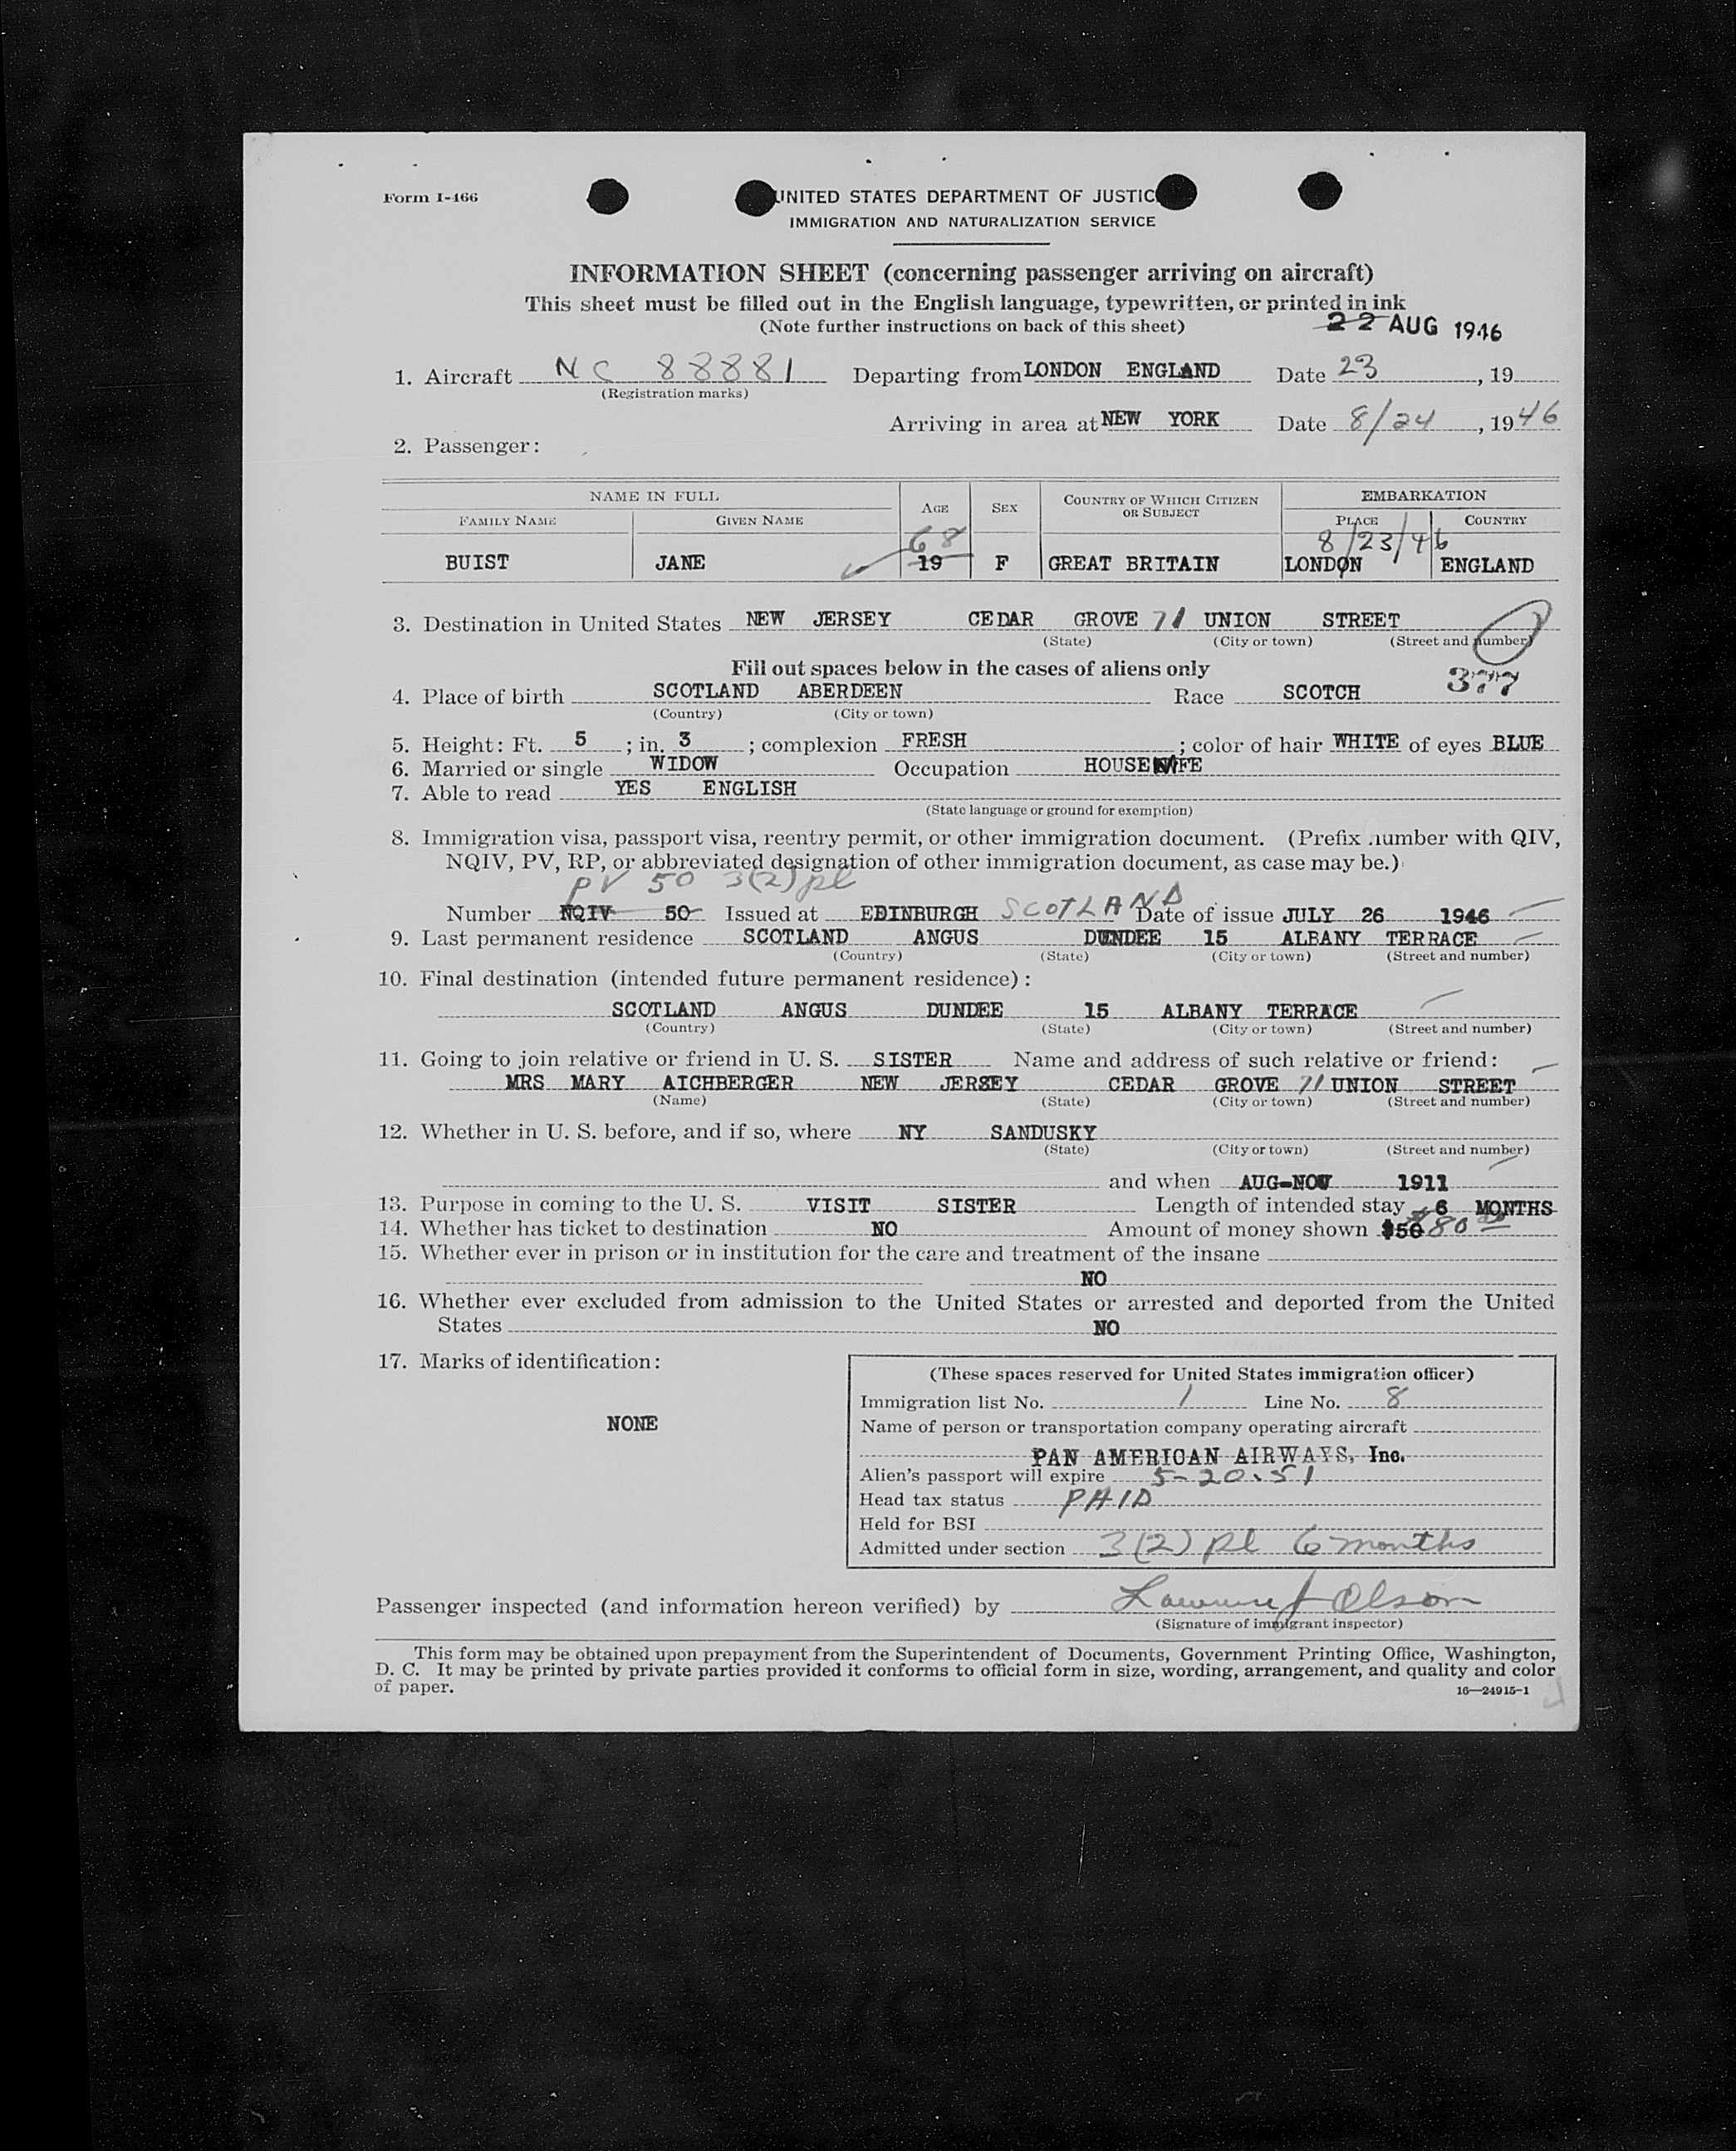 Form I-466
UNITED STATES DEPARTMENT OF JUSTIC
IMMIGRATION AND NATURALIZATION SERVICE
INFORMATION SHEET (concerning passenger arriving on aircraft)
This sheet must be filled out in the English language, typewritten, or printed in ink
(Note further instructions on back of this sheet)
22 AUG 1946
1. Aircraft NC 88881 Departing from LONDON ENGLAND Date 23, 19
(Registration marks)
Arriving in area at NEW YORK Date 8/24, 1946
2. Passenger:
NAME IN FULL AGE SEX COUNTRY OF WHICH CITIZEN OR SUBJECT EMBARKATION
FAMILY NAME GIVEN NAME PLACE COUNTRY
68 8/23/46
BUIST JANE 19 F GREAT BRITAIN LONDON ENGLAND
3. Destination in United States NEW JERSEY CEDAR GROVE 71 UNION STREET
(State) (City or town) (Street and number)
Fill out spaces below in the cases of aliens only
377
4. Place of birth SCOTLAND ABERDEEN Race SCOTCH
(Country) (City or town)
5. Height: Ft. 5; in. 3; complexion FRESH; color of hair WHITE of eyes BLUE
6. Married or single WIDOW Occupation HOUSEWIFE
7. Able to read YES ENGLISH
(State language or ground for exemption)
8. Immigration visa, passport visa, reentry permit, or other immigration document. (Prefix number with QIV,
NQIV, PV, RP, or abbreviated designation of other immigration document, as case may be.)
PV 50 3(2) pl
Number NQIV 50 Issued at EDINBURGH SCOTLAND Date of issue JULY 26 1946
9. Last permanent residence SCOTLAND ANGUS DUNDEE 15 ALBANY TERRACE
(Country) (State) (City or town) (Street and number)
10. Final destination (intended future permanent residence):
SCOTLAND ANGUS DUNDEE 15 ALBANY TERRACE
(Country) (State) (City or town) (Street and number)
11. Going to join relative or friend in U. S. SISTER Name and address of such relative or friend:
MRS MARY AICHBERGER NEW JERSEY CEDAR GROVE 71 UNION STREET
(Name) (State) (City or town) (Street and number)
12. Whether in U. S. before, and if so, where NY SANDUSKY
(State) (City or town) (Street and number)
and when AUG-NOV 1911
13. Purpose in coming to the U. S. VISIT SISTER Length of intended stay 6 MONTHS
14. Whether has ticket to destination NO Amount of money shown $50 $80 00
15. Whether ever in prison or in institution for the care and treatment of the insane
NO
16. Whether ever excluded from admission to the United States or arrested and deported from the United
States NO
17. Marks of identification:
NONE
(These spaces reserved for United States immigration officer)
Immigration list No. 1 Line No. 8
Name of person or transportation company operating aircraft
PAN AMERICAN AIRWAYS, Inc.
Alien's passport will expire 5-20-51
Head tax status PAID
Held for BSI
Admitted under section 3(2) pl 6 months
Passenger inspected (and information hereon verified) by Lawrence J Olson
(Signature of immigrant inspector)
This form may be obtained upon prepayment from the Superintendent of Documents, Government Printing Office, Washington,
D. C. It may be printed by private parties provided it conforms to official form in size, wording, arrangement, and quality and color
of paper.
16—24915-1